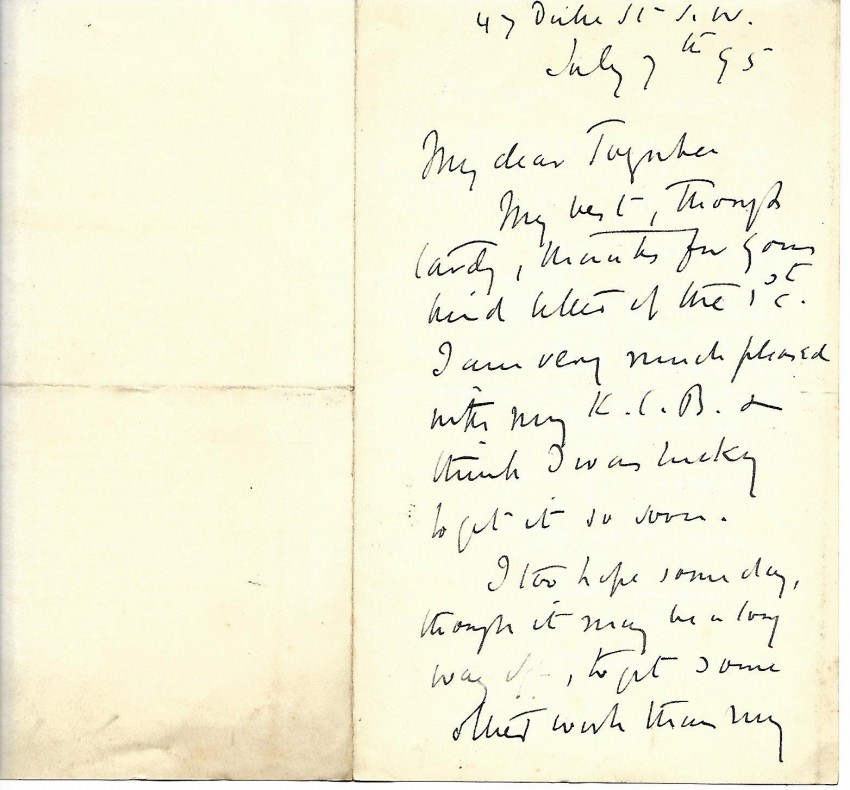 47 Duke St S.W.
July 7th 95
My dear Toynbee
My best, though
tardy, thanks for your
kind letter of the 1st.
I am very much pleased
with my K.C.B. &
think I was lucky
to get it so soon.
I too hope some day,
though it may be a long
way off, to get some
other work than my